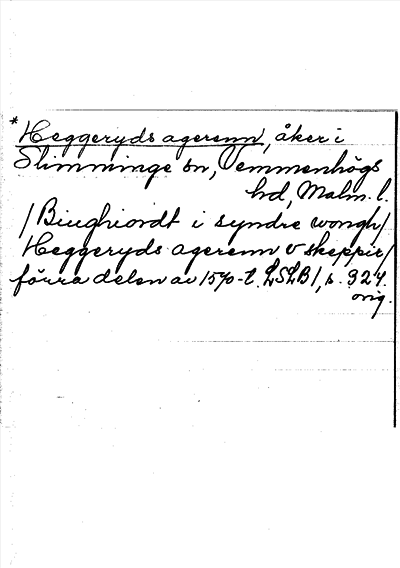 * Heggeryds agerenn, åker i
Slimminge sn, Vemmenhögs
hd, Malm. l.
/Biughiordt i syndre wongh/
Heggeryds agerenn v skeppir/
förra delen av 1570-t. LSLB1, s. 324.
orig.